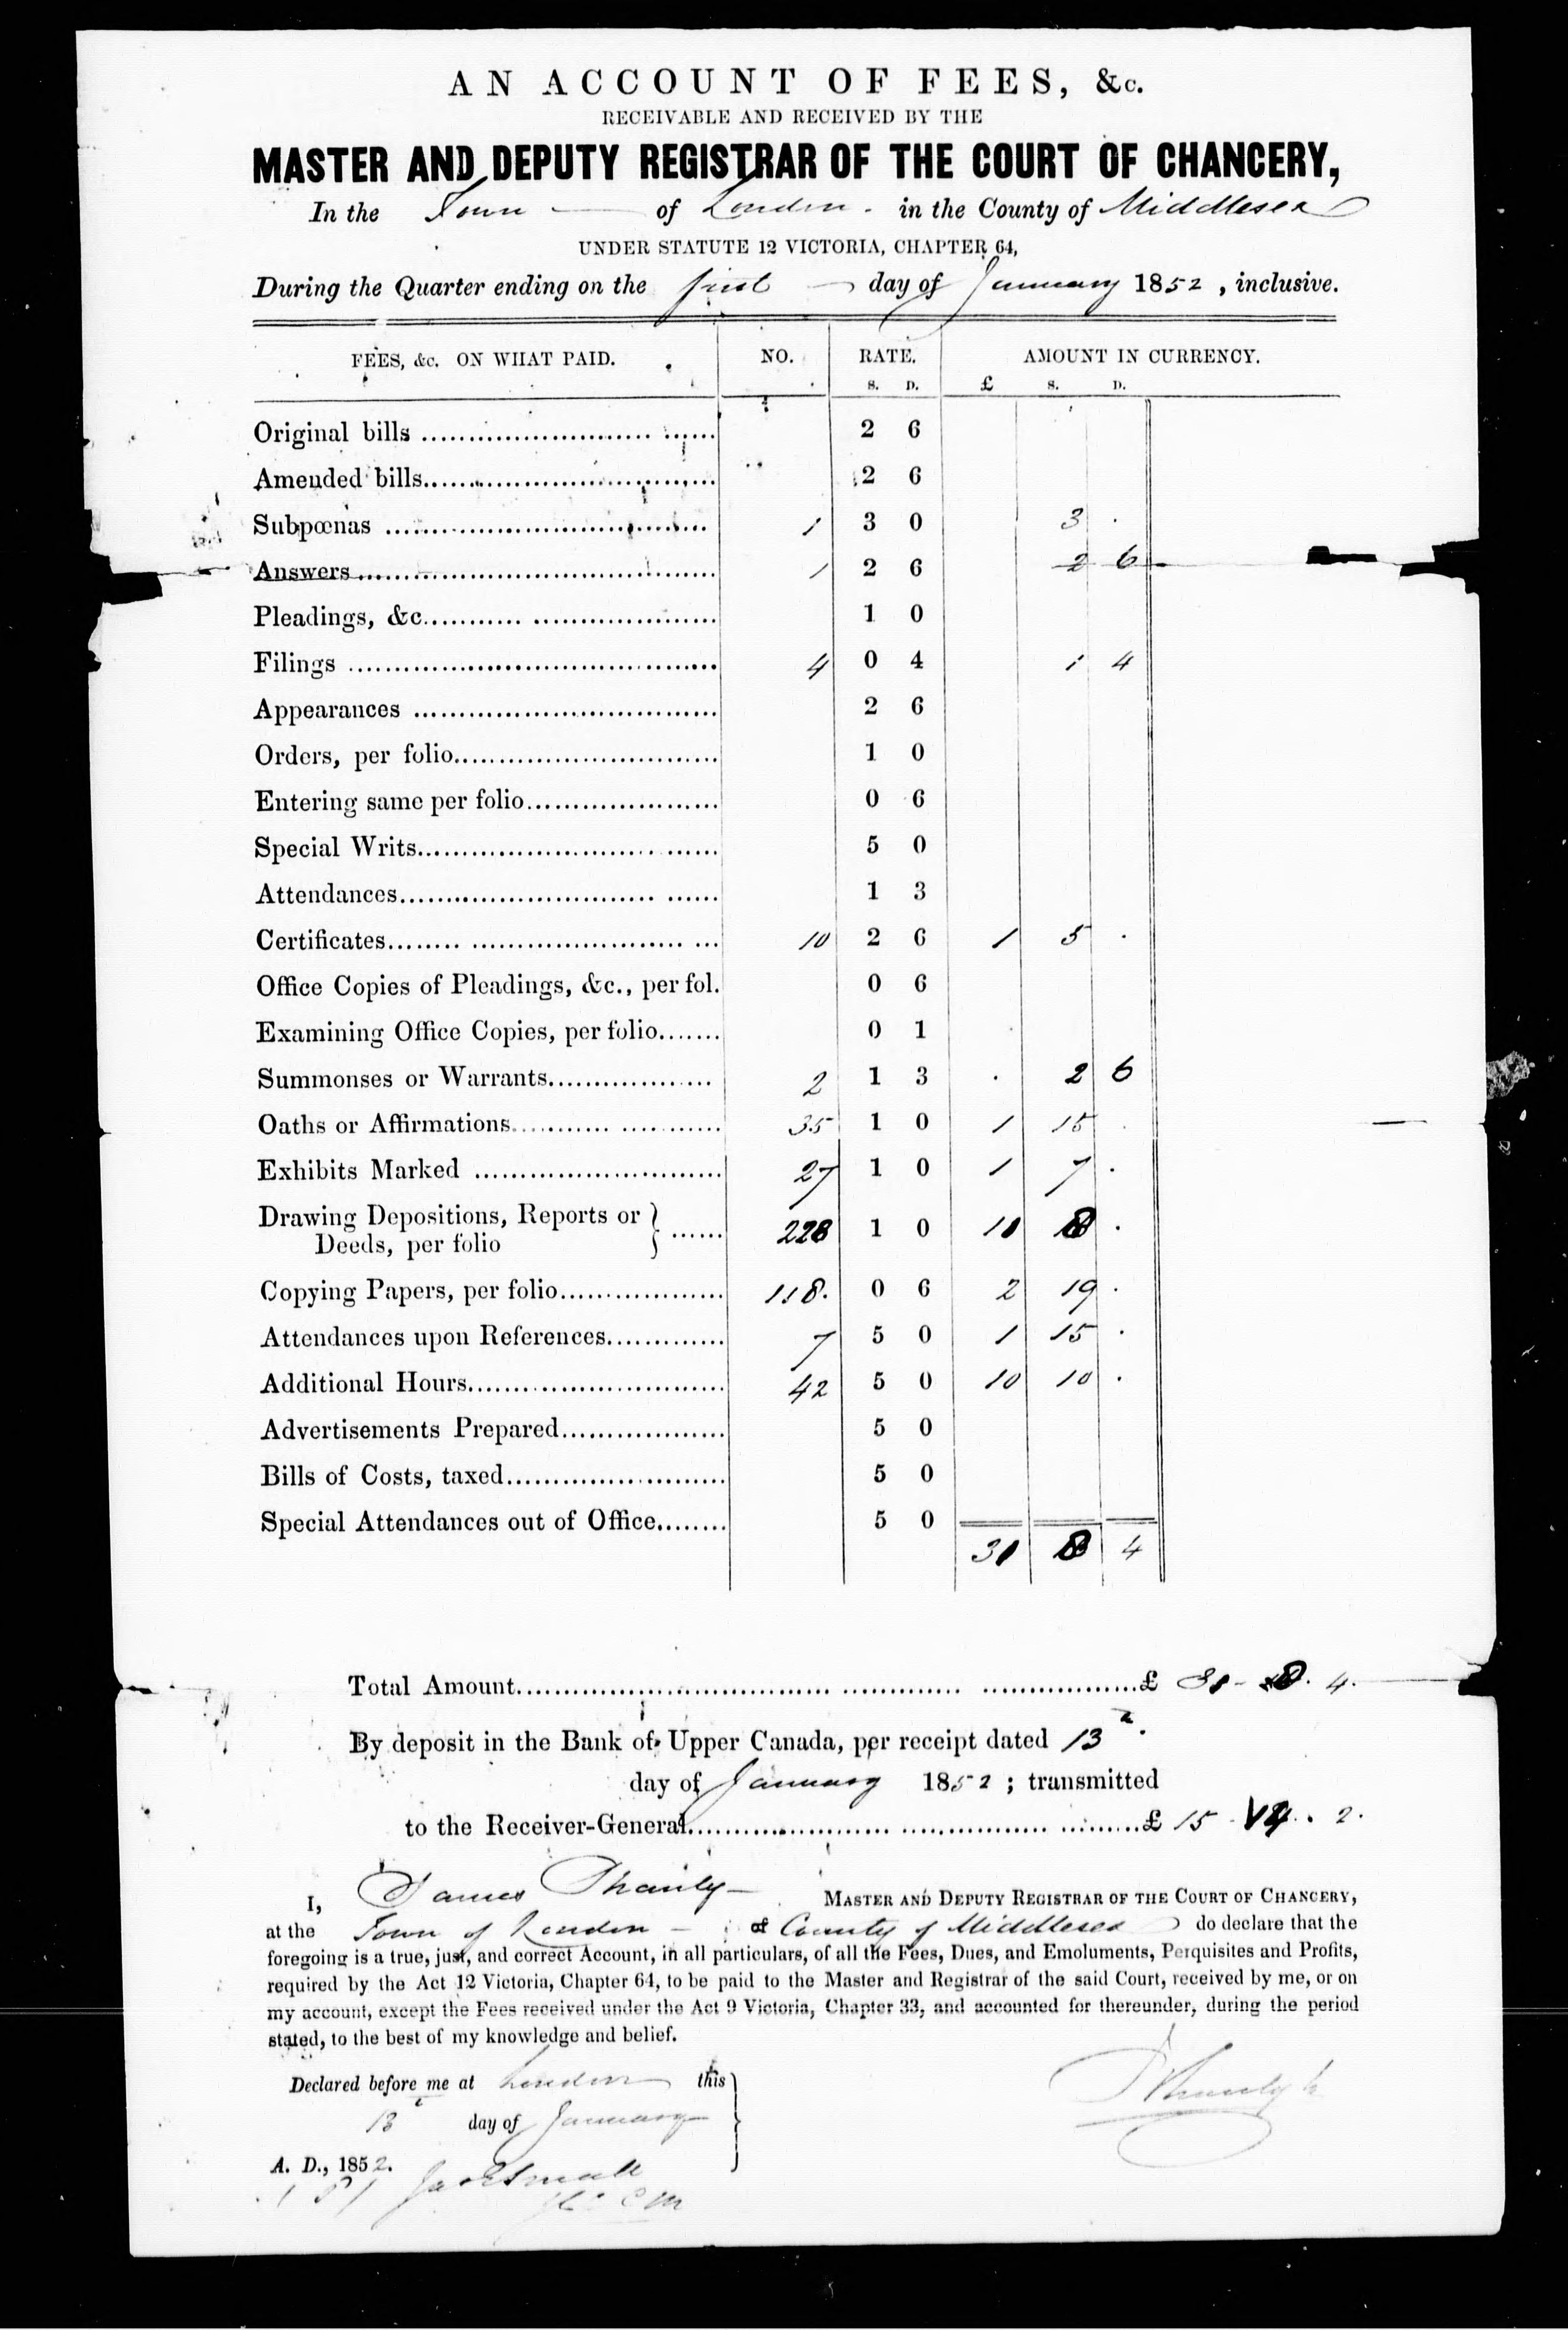 AN ACCOUNT OF FEES, &c.
RECEIVABLE AND RECEIVED BY THE
MASTER AND DEPUTY REGISTRAR OF THE COURT OF CHANCERY,
In the Town of London - in the County of Middlesex
UNDER STATUTE 12 VICTORIA, CHAPTER 64,
During the Quarter ending on the first day of January 1852, inclusive.
FEES, &c. ON WHAT PAID. NO. RATE. AMOUNT IN CURRENCY.
S. D. £ S. D.
Original bills 2 6
Amended bills 2 6
Subpœnas 1 3 0 3 .
Answers 1 2 6 2 6
Pleadings, &c. 1 0
Filings 4 0 4 1 4
Appearances 2 6
Orders, per folio 1 0
Entering same per folio 0 6
Special Writs 5 0
Attendances 1 3
Certificates 10 2 6 1 5 .
Office Copies of Pleadings, &c., per fol. 0 6
Examining Office Copies, per folio 0 1
Summonses or Warrants 2 1 3 . 2 6
Oaths or Affirmations 35 1 0 1 15 .
Exhibits Marked 27 1 0 1 7 .
Drawing Depositions, Reports or
Deeds, per folio 228 1 0 11 8 .
Copying Papers, per folio 118. 0 6 2 19 .
Attendances upon References 7 5 0 1 15 .
Additional Hours 42 5 0 10 10 .
Advertisements Prepared 5 0
Bills of Costs, taxed 5 0
Special Attendances out of Office 5 0
31 8 4
Total Amount £ 31 - 8. 4.
By deposit in the Bank of Upper Canada, per receipt dated 13
day of January 1852; transmitted
to the Receiver-General £ 15 14. 2.
I, James Shanly MASTER AND DEPUTY REGISTRAR OF THE COURT OF CHANCERY,
at the Town of London - of County of Middlesex do declare that the
foregoing is a true, just, and correct Account, in all particulars, of all the Fees, Dues, and Emoluments, Perquisites and Profits,
required by the Act 12 Victoria, Chapter 64, to be paid to the Master and Registrar of the said Court, received by me, or on
my account, except the Fees received under the Act 9 Victoria, Chapter 33, and accounted for thereunder, during the period
stated, to the best of my knowledge and belief.
Declared before me at London this
13 day of January
J Shanly Jr
A. D., 1852.